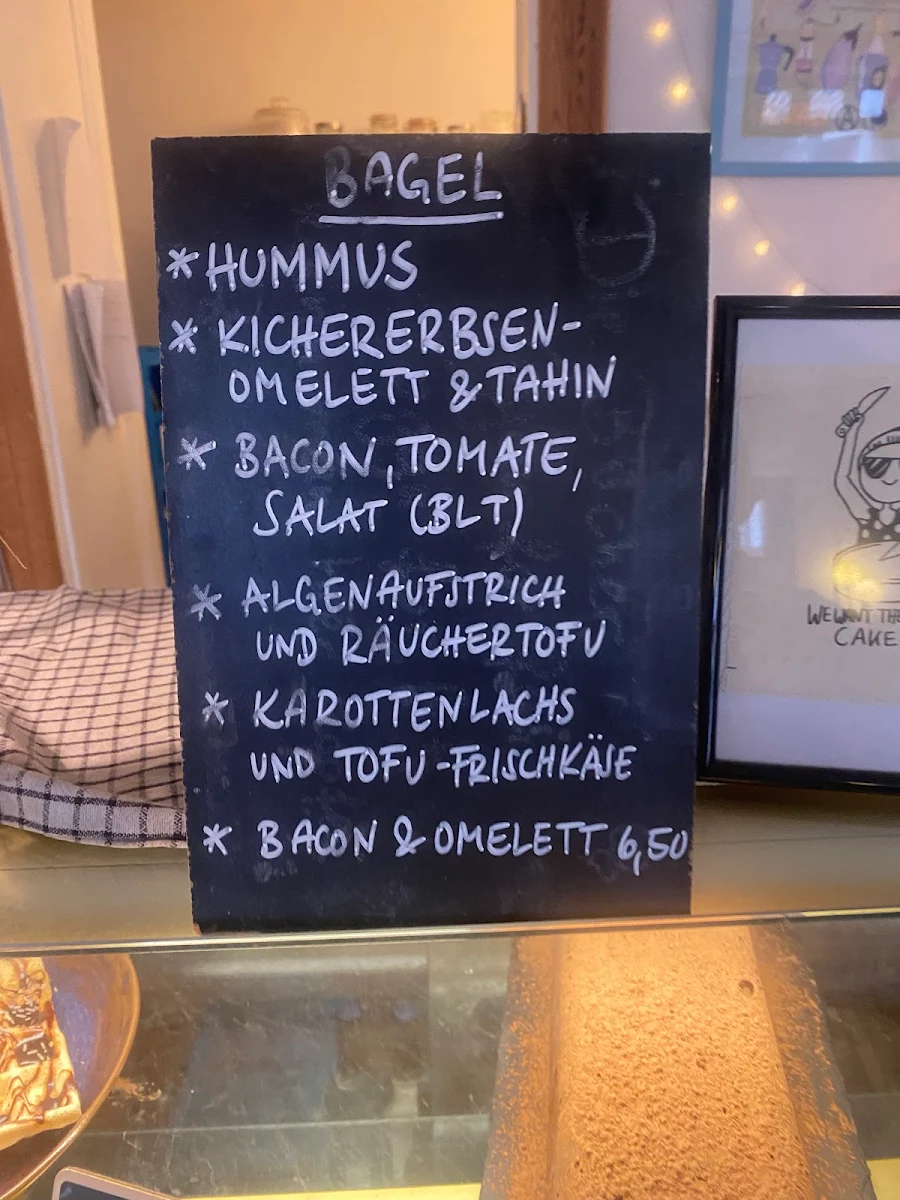 BAGEL
* HUMMUS
* KICHERERBSEN-
OMELETT & TAHIN
* BACON, TOMATE,
SALAT (BLT)
* ALGENAUFSTRICH
UND RÄUCHERTOFU
* KAROTTENLACHS
UND TOFU-FRISCHKÄSE
* BACON & OMELETT 6,50
WE WANT THE
CAKE